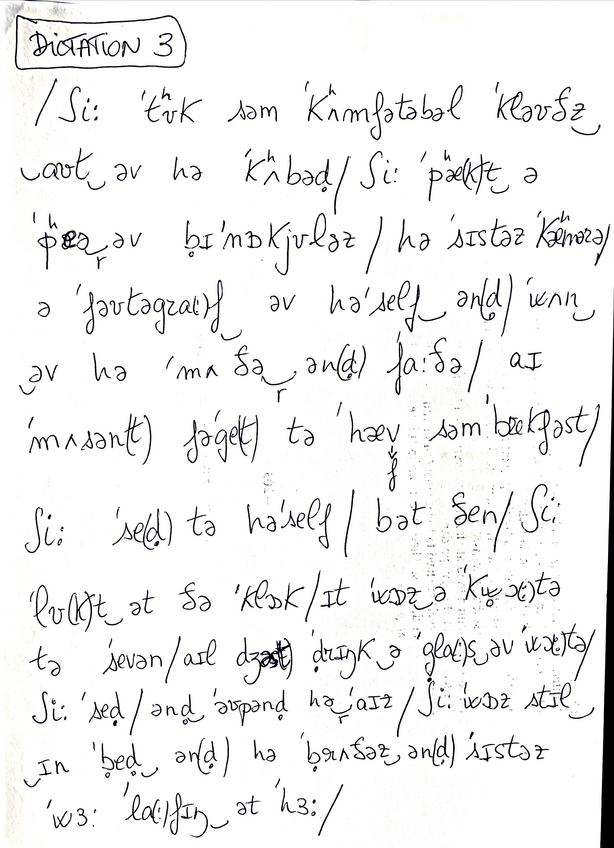 DICTATION 3
/ʃi: 'tʰʊk səm 'kʰʌmfətəbəl 'kləʊðz‿
‿aʊt‿əv hə 'kʰʌbəd̥/ ʃi: 'pʰæ(k)t‿ə
'pʰeə‿r əv b̥ɪ'nɒkjʊləz / hə 'sɪstəz 'kʰæmərə/
ə 'fəʊtəgrɑ(:)f‿ əv hə'self‿ ən(d̥) 'wʌn‿
‿əv hə 'mʌðə‿r ən(d̥) 'fɑ:ðə/ aɪ
'mʌsən(t) fə'ge(t) tə 'hæv səm 'brekfəst/
f
ʃi: 'se(d̥) tə hə'self / bət ðen/ ʃi:
'lʊ(k)t‿ət ðə 'klɒk/ɪt 'wɒz‿ə 'kw̥ɔ(:)tə
tə 'sevən/aɪl dʒəs(t) 'd̥rɪŋk‿ə 'glɑ(:)s‿əv 'wɔ(:)tə/
ʃi: 'sed̥/ənd‿'əʊpənd̥ hə‿r'aɪz/ʃi: 'wɒz stɪl‿
‿ɪn 'b̥ed̥‿ən(d̥) hə 'b̥rʌðəz‿ən(d̥) 'sɪstəz
'wɜ: 'lɑ(:)fɪŋ‿ət 'hɜ:/